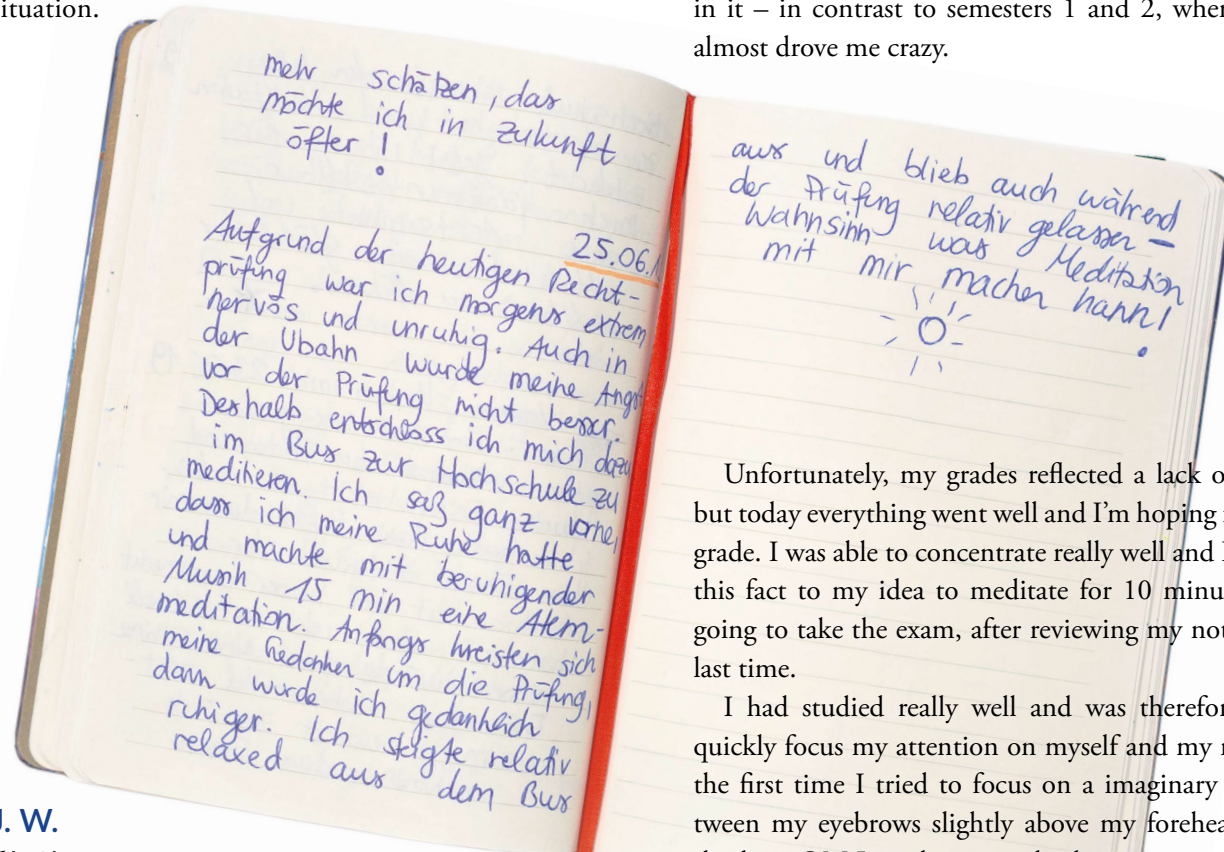 ituation.
mehr schätzen, das
möchte ich in Zukunft
öfter!
25.06.
Aufgrund der heutigen Recht-
prüfung war ich morgens extrem
nervös und unruhig. Auch in
der Ubahn wurde meine Angst
vor der Prüfung nicht besser.
Deshalb entschloss ich mich dazu
im Bus zur Hochschule zu
meditieren. Ich saß ganz vorne,
dass ich meine Ruhe hatte
und machte mit beruhigender
Musik 15 min eine Atem-
meditation. Anfangs kreisten sich
meine Gedanken um die Prüfung,
dann wurde ich gedanklich
ruhiger. Ich steigte relativ
relaxed aus dem Bus
J. W.
in it – in contrast to semesters 1 and 2, wher
almost drove me crazy.
aus und blieb auch während
der Prüfung relativ gelassen –
Wahnsinn was Meditation
mit mir machen kann!
Unfortunately, my grades reflected a lack o
but today everything went well and I'm hoping
grade. I was able to concentrate really well and
this fact to my idea to meditate for 10 minu
going to take the exam, after reviewing my not
last time.
I had studied really well and was therefor
quickly focus my attention on myself and my
the first time I tried to focus on a imaginary
tween my eyebrows slightly above my forehea